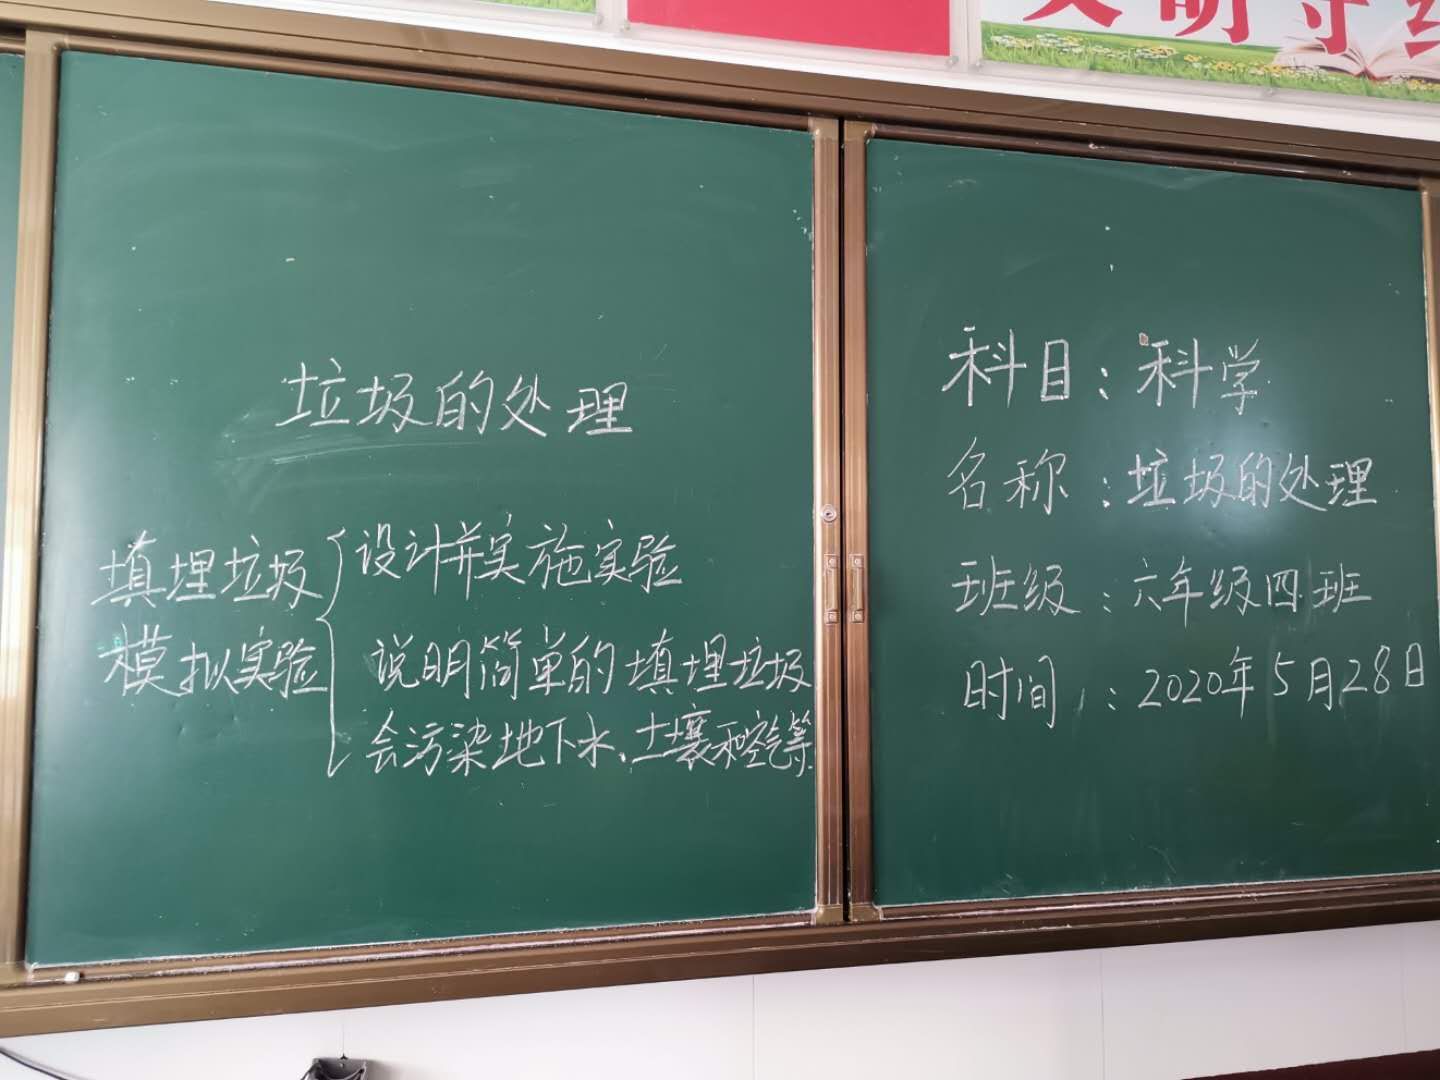 文明守纪
垃圾的处理
填埋垃圾
模拟实验
设计并实施实验
说明简单的填埋垃圾
会污染地下水、土壤和空气等.
科目：科学
名称：垃圾的处理
班级：六年级四班
时间：2020年5月28日